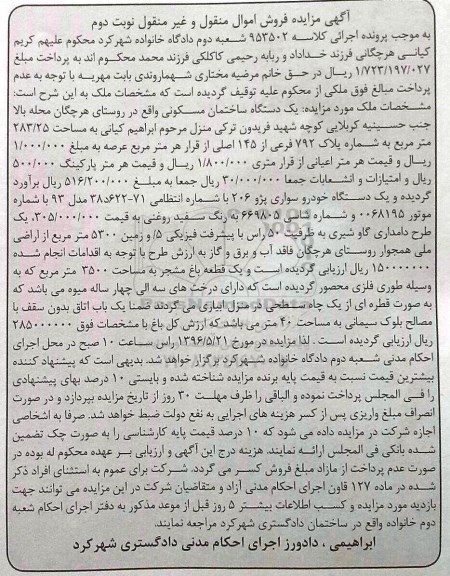 آگهی مزایده فروش اموال منقول و غیر منقول نوبت دوم
به موجب پرونده اجرائی کلاسه ۹۵۳۵۰۲ شعبه دوم دادگاه خانواده شهرکرد محکوم علیهم کریم
کیانی هرچگانی فرزند خداداد و ربابه رحیمی کاکلکی فرزند محمد محکوم اند به پرداخت مبلغ
۱/۷۲۳/۱۹۷/۰۲۷ ریال در حق خانم مرضیه مختاری شهماروندی بابت مهریه با توجه به عدم
پرداخت مبالغ فوق ملکی از محکوم علیه توقیف گردیده است که مشخصات ملک به این شرح است:
مشخصات ملک مورد مزایده: یک دستگاه ساختمان مسکونی واقع در روستای هرچگان محله بالا
جنب حسینیه کربلایی کوچه شهید فریدون ترکی منزل مرحوم ابراهیم کیانی به مساحت ۲۸۳/۲۵
متر مربع به شماره پلاک ۷۹۲ فرعی از ۱۴۵ اصلی از قرار هر متر مربع عرصه به مبلغ ۱/۰۰۰/۰۰۰
ریال و قیمت هر متر اعیانی از قرار متری ۱/۸۰۰/۰۰۰ ریال و قیمت هر متر پارکینگ ۵۰۰/۰۰۰
ریال و امتیازات و انشعابات جمعا ۳۰/۰۰۰/۰۰۰ ریال جمعا به مبلغ ۵۱۶/۲۰۰/۰۰۰ ریال برآورد
گردیده و یک دستگاه خودرو سواری پژو ۲۰۶ با شماره انتظامی ۷۱-۶۲۲د۳۸ مدل ۹۳ با شماره
موتور ۰۰۶۸۱۹۵ و شماره شاسی ۶۶۹۸۰۵ به رنگ سفید روغنی به قیمت ۳۰۵/۰۰۰/۰۰۰، یک
طرح دامداری گاو شیری به ظرفیت ۵۰ راس با پیشرفت فیزیکی ۵/ و زمین ۵۳۰۰ متر مربع از اراضی
ملی همجوار روستای هرچگان فاقد آب و برق و گاز به ارزش طرح با توجه به اقدامات انجام شده
۱۵۰۰۰۰۰۰۰ ریال ارزیابی گردیده است و یک قطعه باغ مشجر به مساحت ۳۵۰۰ متر مربع که به
وسیله طوری فلزی محصور گردیده است که دارای درخت های سه الی چهار ساله میوه می باشد که
به صورت قطره ای از یک چاه سطحی در منزل ابیاری می گردند ضمنا یک باب اتاق بدون سقف با
مصالح بلوک سیمانی به مساحت ۴۰ متر می باشد که ارزش کل باغ با مشخصات فوق ۲۸۵۰۰۰۰۰۰
ریال ارزیابی گردیده است . لذا مزایده در مورخ ۱۳۹۶/۵/۲۱ راس ساعت ۱۰ صبح در محل اجرای
احکام مدنی شعبه دوم دادگاه خانواده شهرکرد برگزار خواهد شد. بدیهی است که پیشنهاد کننده
بیشترین قیمت نسبت به قیمت پایه برنده مزایده شناخته شده و بایستی ۱۰ درصد بهای پیشنهادی
را فی المجلس پرداخت نموده و الباقی را ظرف مهلت ۳۰ روز از تاریخ مزایده بپردازد و در صورت
انصراف مبلغ واریزی پس از کسر هزینه های اجرایی به نفع دولت ضبط خواهد شد. صرفا به اشخاصی
اجازه شرکت در مزایده داده می شود که ۱۰ درصد قیمت پایه کارشناسی را به صورت چک تضمین
شده بانکی فی المجلس ارائه نمایند. هزینه درج این آگهی و ارزیابی بر عهده محکوم له بوده در
صورت عدم پرداخت از مازاد مبلغ فروش کسر می گردد. شرکت برای عموم به استثنای افراد ذکر
شده در ماده ۱۲۷ قاون اجرای احکام مدنی آزاد و متقاضیان شرکت در این مزایده می توانند جهت
بازدید مورد مزایده و کسب اطلاعات بیشتر ۵ روز قبل از موعد مذکور به دفتر اجرای احکام شعبه
دوم خانواده واقع در ساختمان دادگستری شهرکرد مراجعه نمایند.
ابراهیمی ، دادورز اجرای احکام مدنی دادگستری شهرکرد